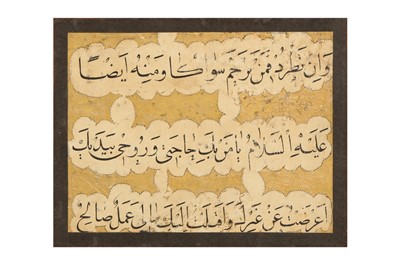 وَاِنْ تَطْرُدْ فَمَنْ يَرْحَمْ سِوَاكَا وَمِنْهُ اَيْضًا
عَلَيْهِ السَّلَامُ يَا مَنْ بِكَ حَاجَتِي وَرُوحِي بِيَدَيْكَ
اَعْرَضْتُ عَنْ غَيْرِكَ وَاَقْبَلْتُ اِلَيْكَ مَالِي عَمَلٌ صَالِحٌ